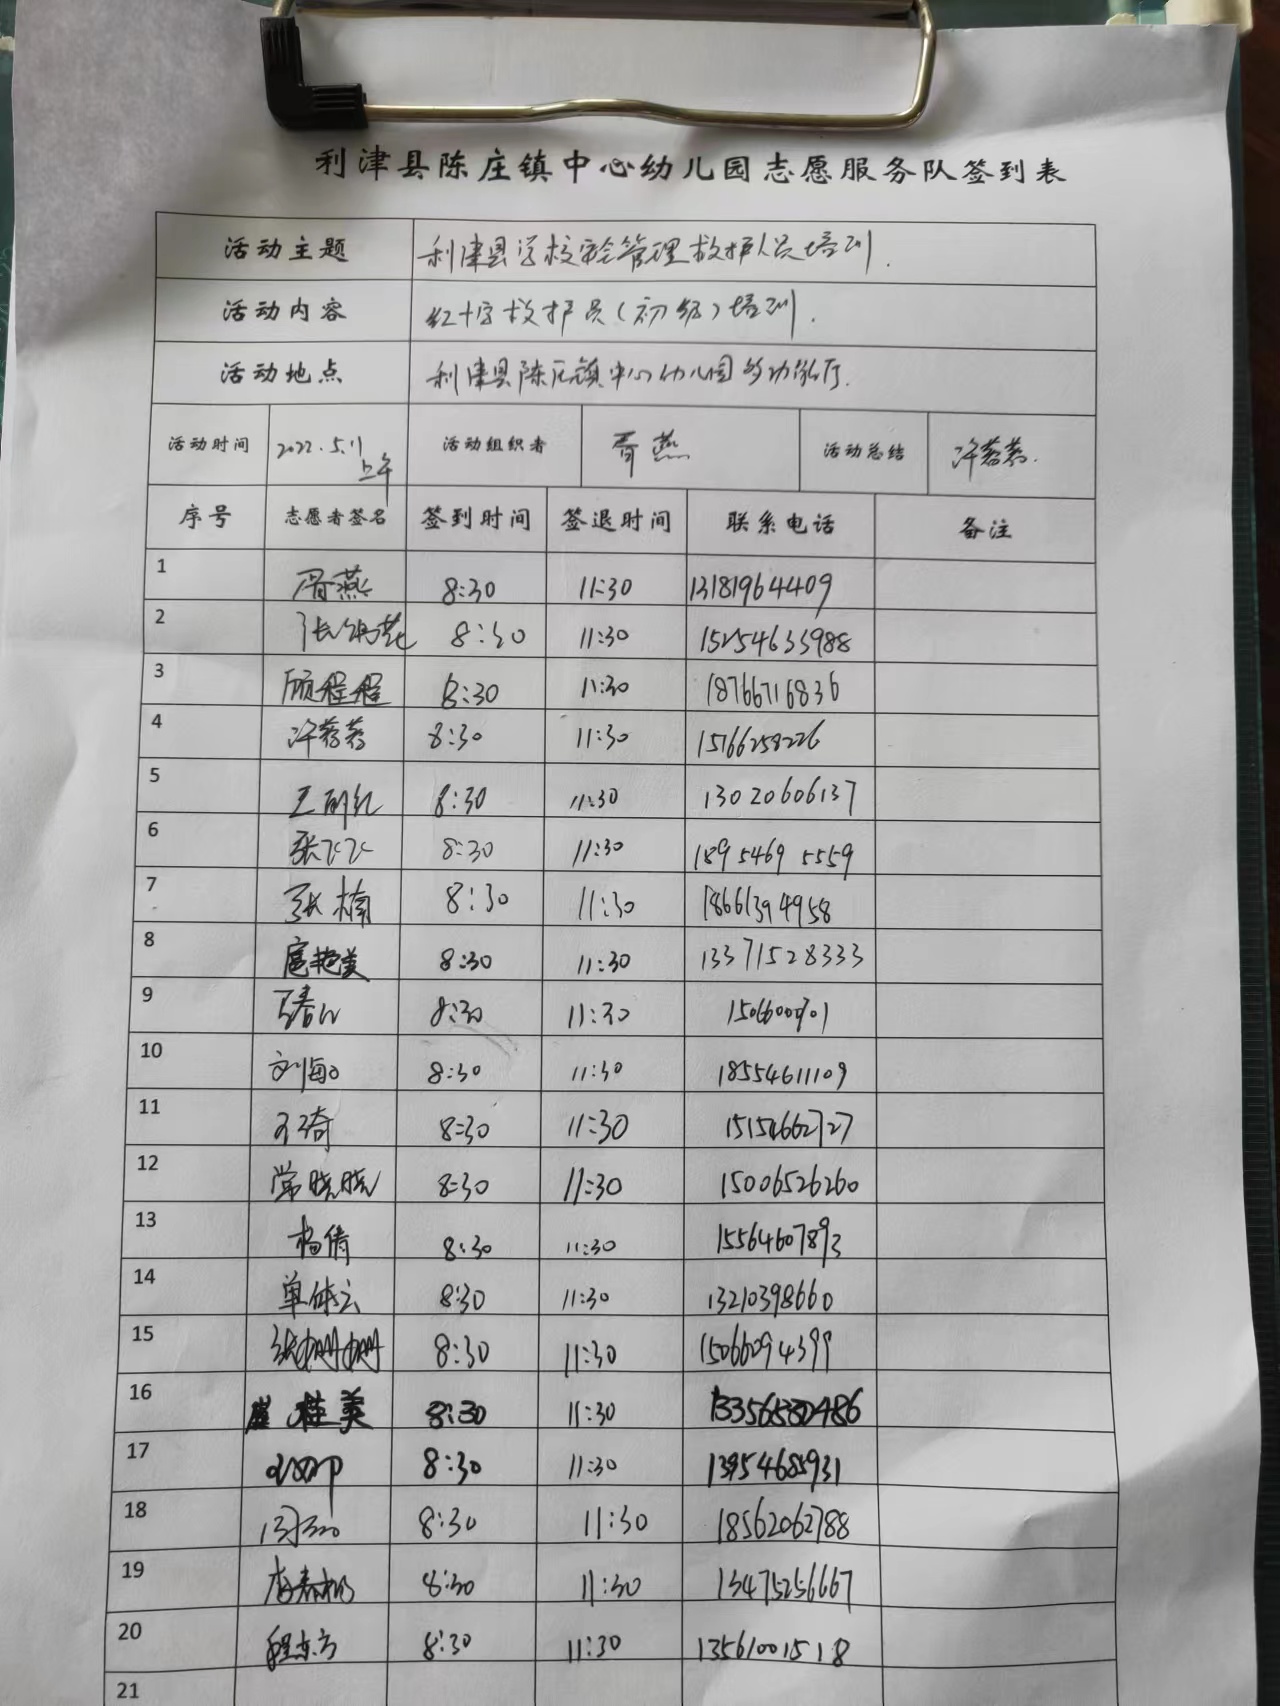 利津县陈庄镇中心幼儿园志愿服务队签到表
活动主题 利津县学校 管理救护人员培训.
活动内容 红十字救护员(初级)培训.
活动地点 利津县陈庄镇中心幼儿园多功能厅.
活动时间 2022.5.11 上午 活动组织者 胥燕 活动总结 许蓉蓉.
序号 志愿者签名 签到时间 签退时间 联系电话 备注
1 胥燕 8:30 11:30 13181964409
2 8:30 11:30 15254635988
3 顾程程 8:30 11:30 18766716836
4 许蓉蓉 8:30 11:30 15166258226
5 王丽红 8:30 11:30 13020606137
6 张飞飞 8:30 11:30 18954695559
7 张楠 8:30 11:30 18661394958
8 扈艳美 8:30 11:30 13371528333
9 8:30 11:30
10 刘海 8:30 11:30 18554611109
11 8:30 11:30 15154662727
12 常晓晓 8:30 11:30 15006526260
13 杨倩 8:30 11:30 15564607893
14 单体云 8:30 11:30 13210398660
15 张姗姗 8:30 11:30 15066094399
16 崔桂美 8:30 11:30 13356580486
17 8:30 11:30 13954685931
18 8:30 11:30 18562062788
19 8:30 11:30 13475256667
20 程东方 8:30 11:30 13561001518
21